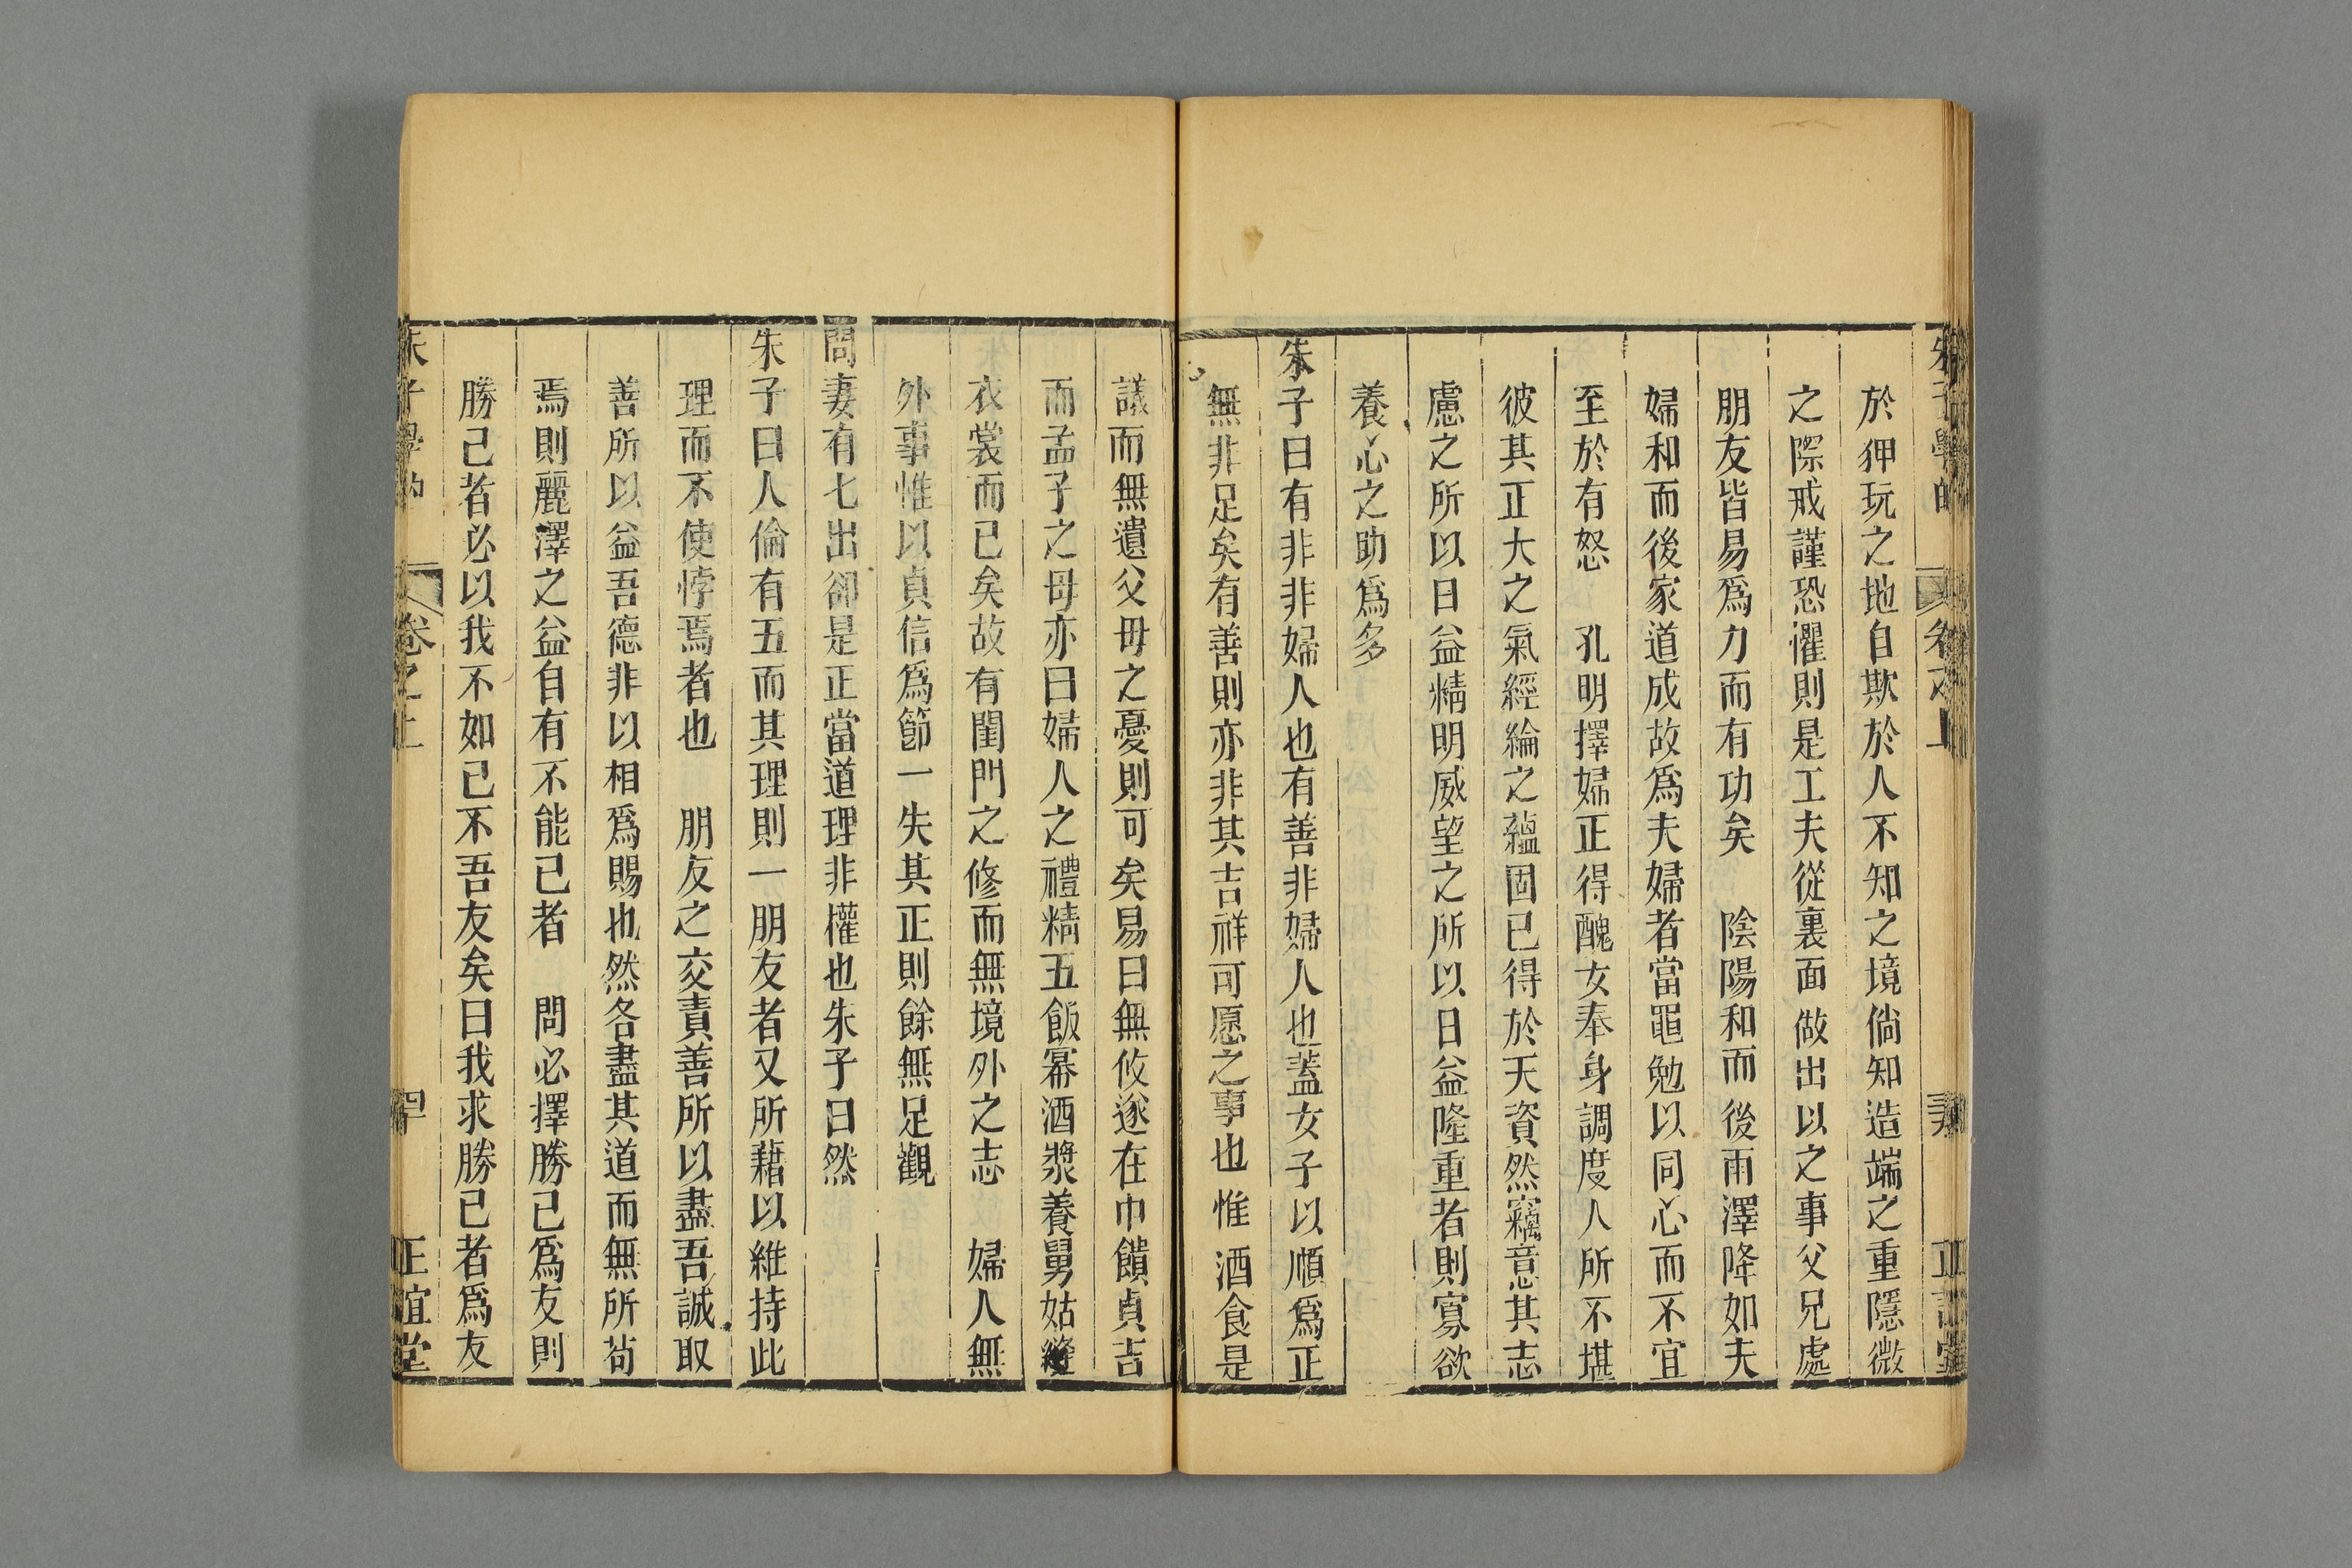 朱子學的 卷之上 正誼堂
於狎玩之地自欺於人不知之境倘知造端之重隱微
之際戒謹恐懼則是工夫從裏面做出以之事父兄處
朋友皆易爲力而有功矣 陰陽和而後雨澤降如夫
婦和而後家道成故爲夫婦者當黽勉以同心而不宜
至於有怒 孔明擇婦正得醜女奉身調度人所不堪
彼其正大之氣經綸之蘊固已得於天資然竊意其志
慮之所以日益精明威望之所以日益隆重者則寡欲
養心之助爲多
朱子曰有非非婦人也有善非婦人也蓋女子以順爲正
無非足矣有善則亦非其吉祥可愿之事也惟酒食是
議而無遺父母之憂則可矣易曰無攸遂在巾饋貞吉
而孟子之母亦曰婦人之禮精五飯冪酒漿養舅姑縫
衣裳而已矣故有閨門之修而無境外之志 婦人無
外事惟以貞信爲節一失其正則餘無足觀
問妻有七出卻是正當道理非權也朱子曰然
朱子曰人倫有五而其理則一朋友者又所藉以維持此
理而不使悖焉者也 朋友之交責善所以盡吾誠取
善所以益吾德非以相爲賜也然各盡其道而無所苟
焉則麗澤之益自有不能已者 問必擇勝己爲友則
勝己者必以我不如己不吾友矣曰我求勝己者爲友
朱子學的 卷之上 四十 正誼堂